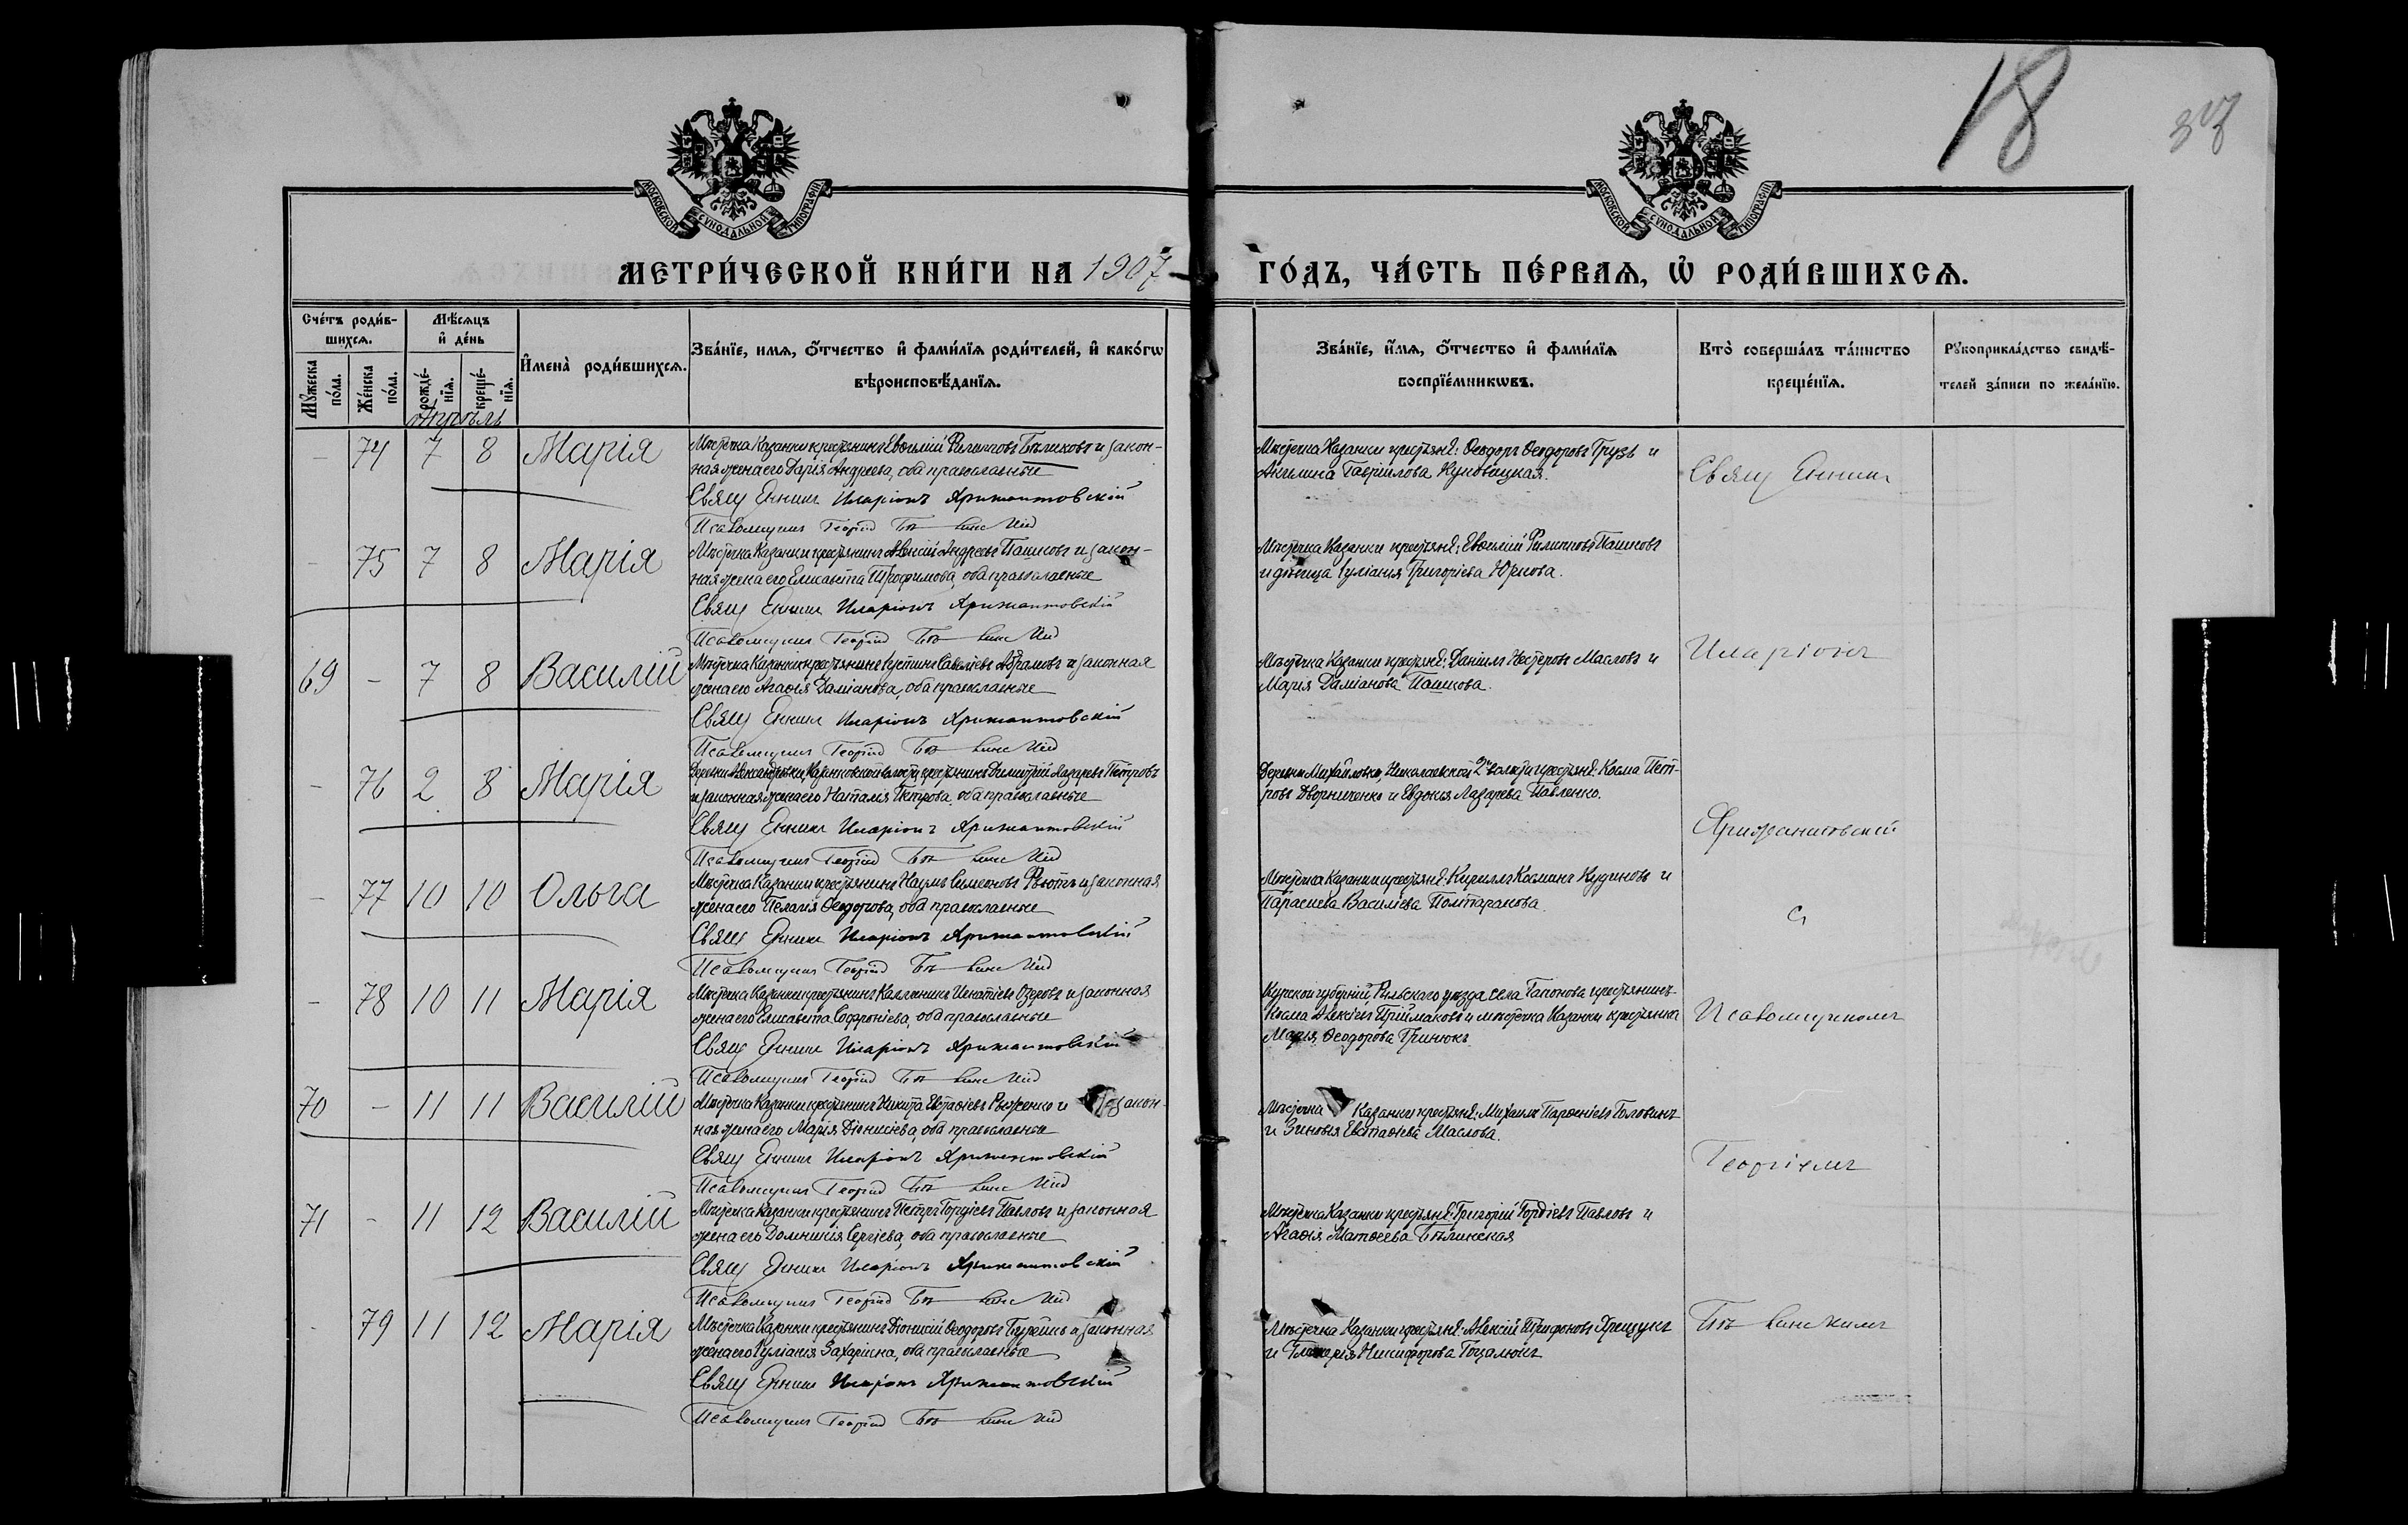 18
МОСКОВСКОЙ СѴНОДАЛЬНОЙ ТИПОГРАФІИ
МОСКОВСКОЙ СѴНОДАЛЬНОЙ ТИПОГРАФІИ
МЕТРИ́ЧЕСКОЙ КНИ́ГИ НА 1907 ГО́ДЪ, ЧА́СТЬ ПЕ́РВАЯ, Ѿ РОДИ́ВШИХСЯ.
Сче́тъ роди́вшихся.
Мꙋ́жеска по́ла.
Же́нска по́ла.
Мѣ́сяцъ и҆ де́нь
рожде́нїя.
креще́нїя.
И҆мена̀ роди́вшихся.
Зва́нїе, имя, о҆́тчество и҆ фами́лїя роди́телей, и҆ како́гѡ
вѣроисповѣ́данїя.
Зва́нїе, и҆́мя, о҆́тчество и҆ фами́лїя
воспрїе́мникѡвъ.
Кто̀ соверша́лъ та́инство
креще́нїя.
Рꙋкоприкла́дство свидѣ́-
телей за́писи по жела́нїю.
Апрѣль
– 74 7 8 Марія
Мѣстечка Казанки крестьянинъ Евѳимій Филиповъ Бѣликовъ и закон-
ная жена его Дарія Андреева, оба православные
Свящ Иларіонъ Крижантовскій
Псаломщикъ Георгій
Мѣстечка Казанки крестьяне: Ѳеодоръ Ѳеодоровъ Грузь и
Акилина Гавріилова
Свящ
– 75 7 8 Марія
Мѣстечка Казанки крестьянинъ Алексій Андреевъ Пашковъ и закон-
ная жена его Елисавета Трофимова, оба православные
Свящ Иларіонъ Крижантовскій
Псаломщикъ Георгій
Мѣстечка Казанки крестьяне: Евѳимій Филипповъ Пашковъ
и дѣвица Іуліанія Григоріева Юркова.
69 – 7 8 Василій
Мѣстечка Казанки крестьянинъ Іустинъ Савеліевъ Абрамовъ и законная
жена его Агаѳія Даміанова, оба православные
Свящ Иларіонъ Крижантовскій
Псаломщикъ Георгій
Мѣстечка Казанки крестьяне: Даніилъ Нестеровъ Масловъ и
Марія Даміанова Пашкова.
Иларіонъ
– 76 2 8 Марія
Деревни Александровки, Казанковской волости, крестьянинъ Димитрій Лазаревъ Петровъ
и законная жена его Наталія Петрова, оба православные
Свящ Иларіонъ Крижантовскій
Псаломщикъ Георгій
Деревни Михайловки, Николаевской 2й волости крестьяне: Косма Пет-
ровъ Дворниченко и Евдокія Лазарева Павленко.
Крижантовскій
– 77 10 10 Ольга
Мѣстечка Казанки крестьянинъ Наумъ Симеоновъ и законная
жена его Пелагія Ѳеодорова, оба православные
Свящ Иларіонъ Крижантовскій
Псаломщикъ Георгій
Мѣстечка Казанки крестьяне: Кириллъ Косминъ Кудиновъ и
Параскева Василіева Полтаракова
съ
– 78 10 11 Марія
Мѣстечка Казанки крестьянинъ Каллиникъ Игнатіевъ Озеровъ и законная
жена его Елисавета Софроніева, оба православные
Свящ Иларіонъ Крижантовскій
Псаломщикъ Георгій
Курской губерніи, Рыльскаго уѣзда села Гапонова крестьянинъ
Косма Алексіевъ Пріймаковъ и мѣстечка Казанки крестьянка
Марія Ѳеодорова Гринюкъ
Псаломщикомъ
70 – 11 11 Василій
Мѣстечка Казанки крестьянинъ Никита Евстаѳіевъ Рыженко и закон-
ная жена его Марія Діонисіева, оба православные
Свящ Иларіонъ Крижантовскій
Псаломщикъ Георгій
Мѣстечка Казанки крестьяне: Михаилъ Парѳеніевъ Головинъ
и Зиновія Евстаѳіева Маслова.
Георгіемъ
71 – 11 12 Василій
Мѣстечка Казанки крестьянинъ Петръ Гордіевъ Павловъ и законная
жена его Домникія Сергіева, оба православные
Свящ Иларіонъ Крижантовскій
Псаломщикъ Георгій
Мѣстечка Казанки крестьяне: Григорій Гордіевъ Павловъ и
Агаѳія Матѳеева Бѣлинская
– 79 11 12 Марія
Мѣстечка Казанки крестьянинъ Діонисій Ѳеодоровъ и законная
жена его Іуліанія Захаріина, оба православные
Свящ Иларіонъ Крижантовскій
Псаломщикъ Георгій
Мѣстечка Казанки крестьяне: Алексій Трифоновъ Хрещукъ
и Гликерія Никифорова